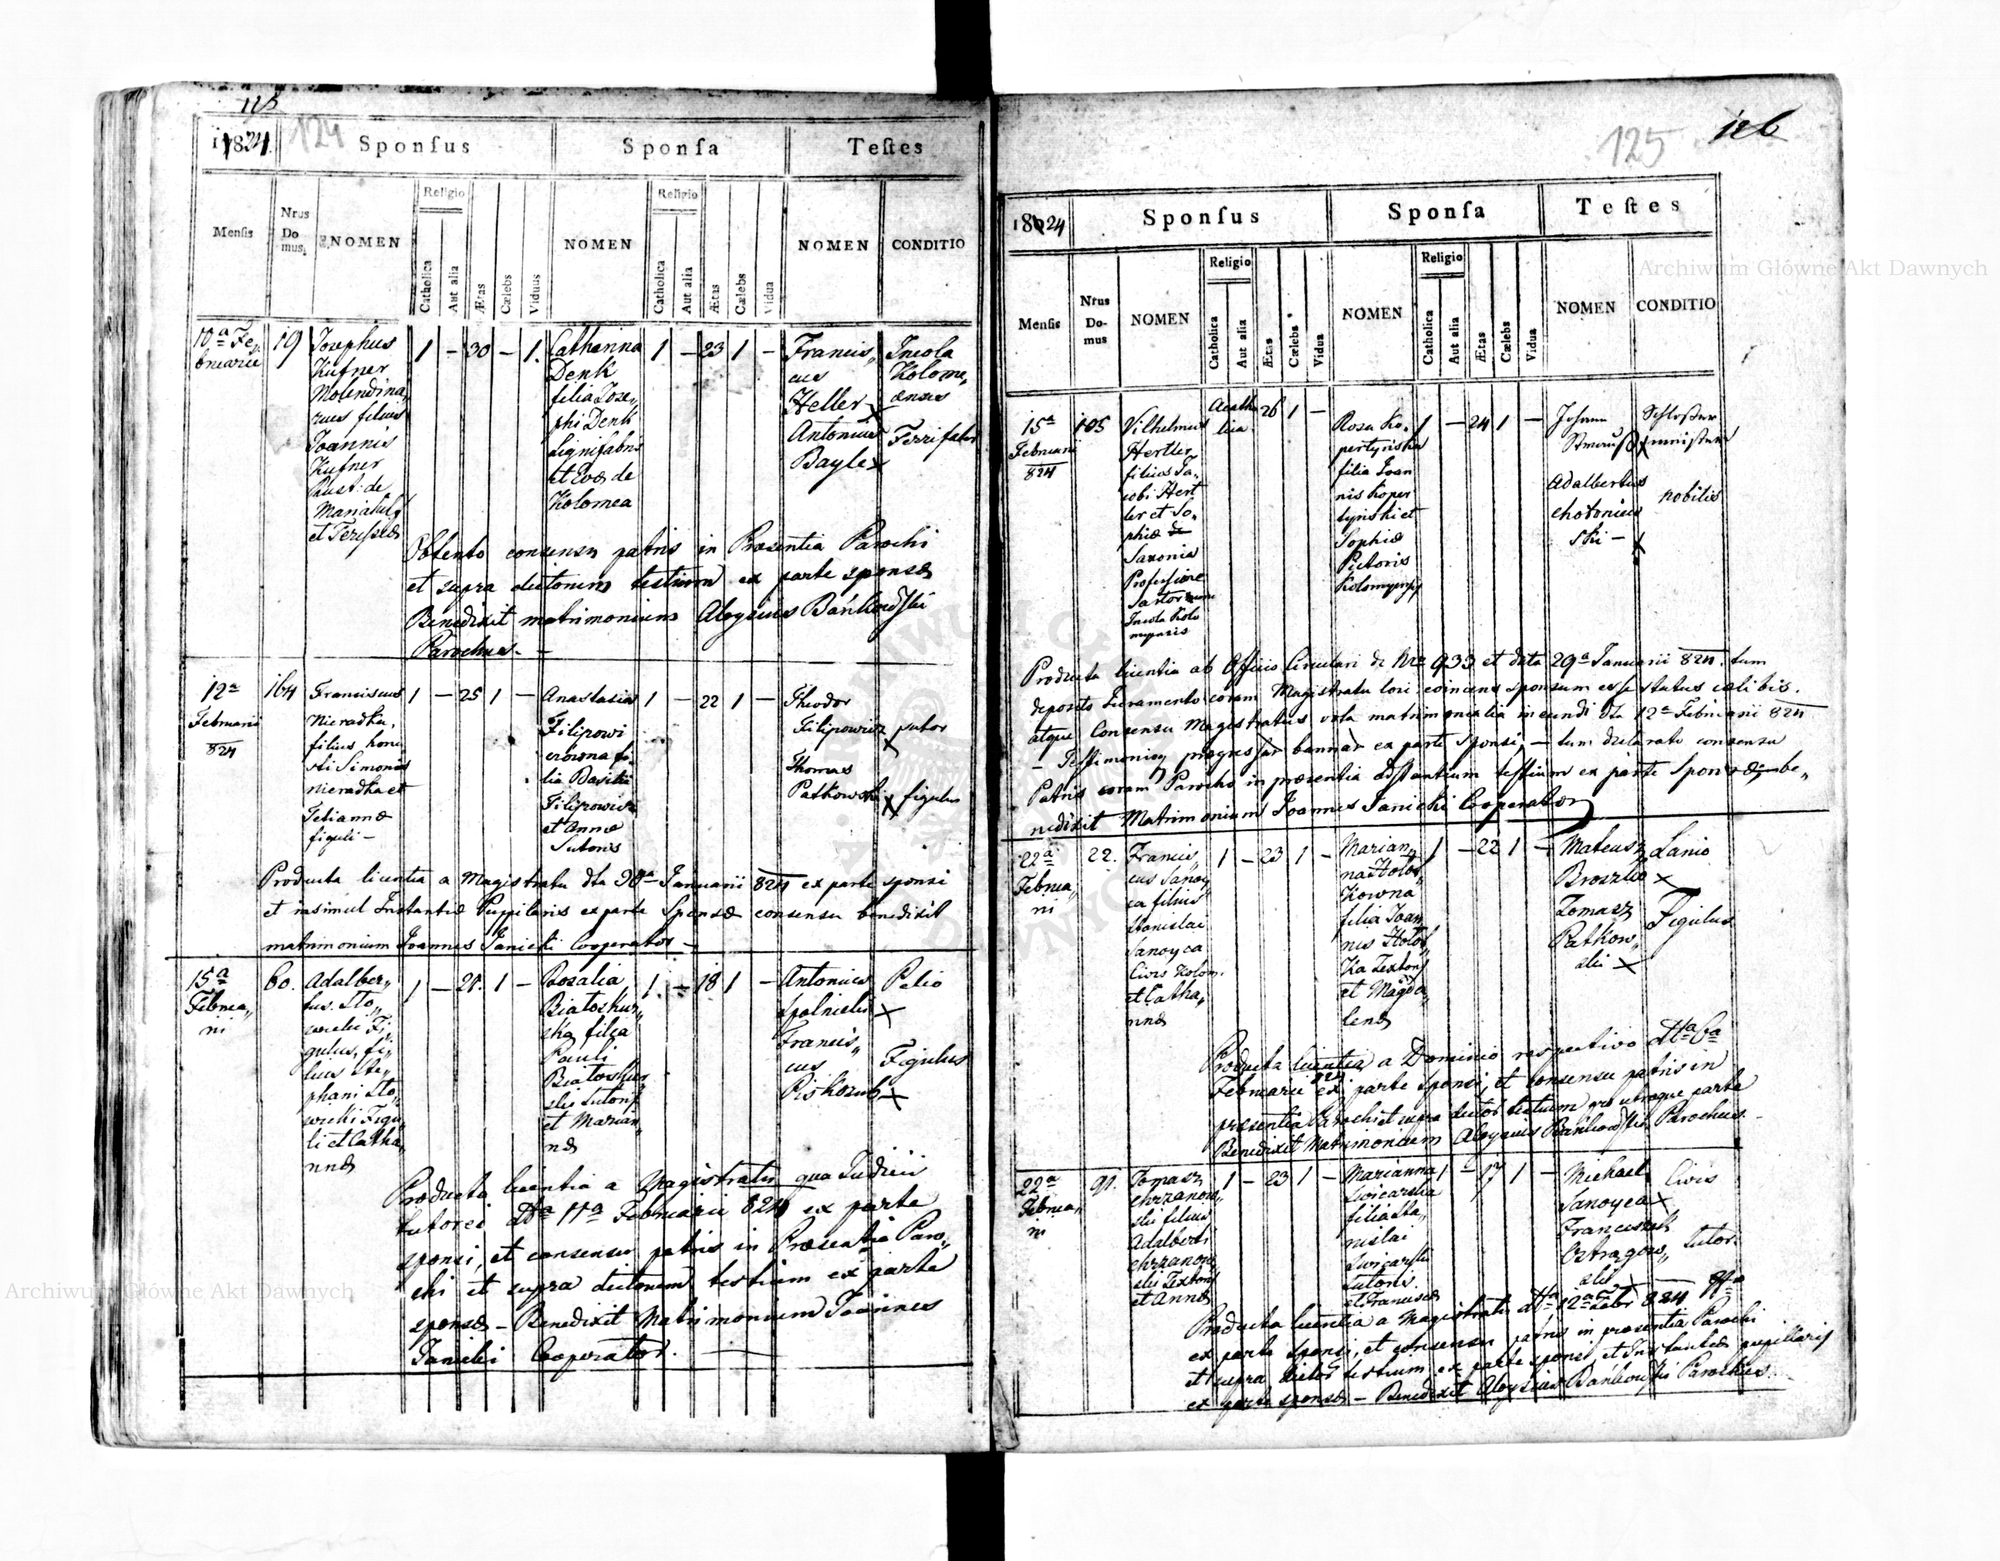 115
124
1824
Sponſus
Sponſa
Teſtes
Menſis
Nrus Domus
NOMEN
Religio
Catholica
Aut alia
Ætas
Cælebs
Viduus
NOMEN
Religio
Catholica
Aut alia
Ætas
Cælebs
Vidua
NOMEN
CONDITIO
10ª Fe
bruarii
19
Josephus
Kufner
Molendina
rius filius
Joannis
Kufner
et Teresiæ
1 — 30 — 1.
Catharina
Denk
filia Jose
phi Denk
Lignifabri
et Evæ de
Kolomea
1 — 23 1 —
Francis
cus
Heller x
Antonius
Bayle x
Incola
Kolome
ensis
Obtento consensu patris in Præsentia Parochi
et supra dictorum testium ex parte sponsæ
Benedixit matrimonium Aloysius Bańkowski
Parochus. —
12ª
Februarii
824
164
Franciscus
Nieradka,
filius hone
sti Simonis
Nieradka et
figuli —
1 — 25 1 —
Anastasia
Filipowi
czowna fi
lia Basilii
Filipowicz
et Annæ
Sutoris
1 — 22 1 —
Theodor
Filipowicz
x
Thomas
Patkowski x
sutor
figulus
Producta licentia a Magistratu dta 30ª Januarii 824 ex parte sponsi
et insimul Instantiæ Pupilaris ex parte Sponsæ consensu benedixit
matrimonium Joannes Janicki Cooperator —
15ª
Februa
rii
60.
Adalber
tus Sto
wicki Fi
gulus, fi
lius Ste
phani Sto
wicki Figu
li et Catha
rinæ
1 — 21. 1 —
Rosalia
Białoskur
ska filia
Pauli
Białoskur
ski Sutoris
et Marian
næ
1. — 18 1 —
Antonius
x
Francis
cus
Piskozub x
Pelio
Figulus
Producta licentia a Magistratu qua Judicii
tutorei dta 11ª Februarii 824 ex parte
sponsi, et consensu patris in Præsentia Paro
chi et supra dictorum testium ex parte
sponsæ — Benedixit Matrimonium Joannes
Janicki Cooperator. —
125
126
1824
Sponſus
Sponſa
Teſtes
Menſis
Nrus Do-mus
NOMEN
Religio
Catholica
Aut alia
Ætas
Cælebs
Vidua
NOMEN
Religio
Catholica
Aut alia
Ætas
Cælebs
Vidua
NOMEN
CONDITIO
15ª
Februarii
824
105
Vilhelmus
Hertler
filius Ja
cobi Hert
ler et So
phiæ de
Saxonia
Professione
Sartor
Incola Kolo
myensis
26 1 —
Rosa Ko
pertynska
filia Joan
nis Koper
tynski et
Sophiæ
Pictoris
Kolomyensis
1 — 24 1 —
Johann
Adalbertus
Chotoniew
ski — x
Schlosser
nobilis
Producta licentia ab Officio Circulari de Nro 933 et dta 29ª Januarii 824. tum
deposito Juramento coram Magistratu loci sponsum esse status cælibis.
atque Consensu Magistratus vota matrimonialia ineundi dta 12ª Februarii 824
— Testimonio bannar ex parte sponsi, — tum declarato consensu
Patris coram Parocho in præsentia testium ex parte Sponsæ be
nedixit Matrimonium Joannes Janicki Cooperator
22ª
Februa
rii
22.
Francis
cus Sanoy
ca filius
Stanislai
Sanoyca
Civis Kolom.
et Catha
rinæ
1 — 23 1 —
Marian
na Holot
Kowna
filia Joan
nis Holot
Ka Textoris
et Magda
lenæ
1 — 22 1 —
Mateusz
x
Tomasz
Patkow
ski x
Lanio
Figulus
Producta licentia a Dominio respectivo dta 6ª
Februarii 824 ex parte sponsi, et consensu patris in
præsentia Parochi et supra dictor testium pro utroque parte
Benedixit Matrimonium Aloysius Bańkowski Parochus —
22ª
Februa
rii
91.
Tomasz
Chrzanow
ski filius
Adalberti
Chrzanow
ski Textoris
et Annæ
1 — 23 1 —
Marianna
filia Sta
nislai
Sutoris
et Franciscæ
1 — 17 1 —
Michael
Sanoyca x
Franciszek
Ostrogow
ski x
Civis
sutor
Producta licentia a Magistratu dta 12ª Febr 824
ex parte sponsi, et consensu patris in præsentia Parochi
et supra dictor testium ex parte sponsi et Instantiæ pupillaris
ex parte sponsæ — Benedixit Aloysius Bańkowski Parochus
Archiwum Główne Akt Dawnych
Archiwum Główne Akt Dawnych